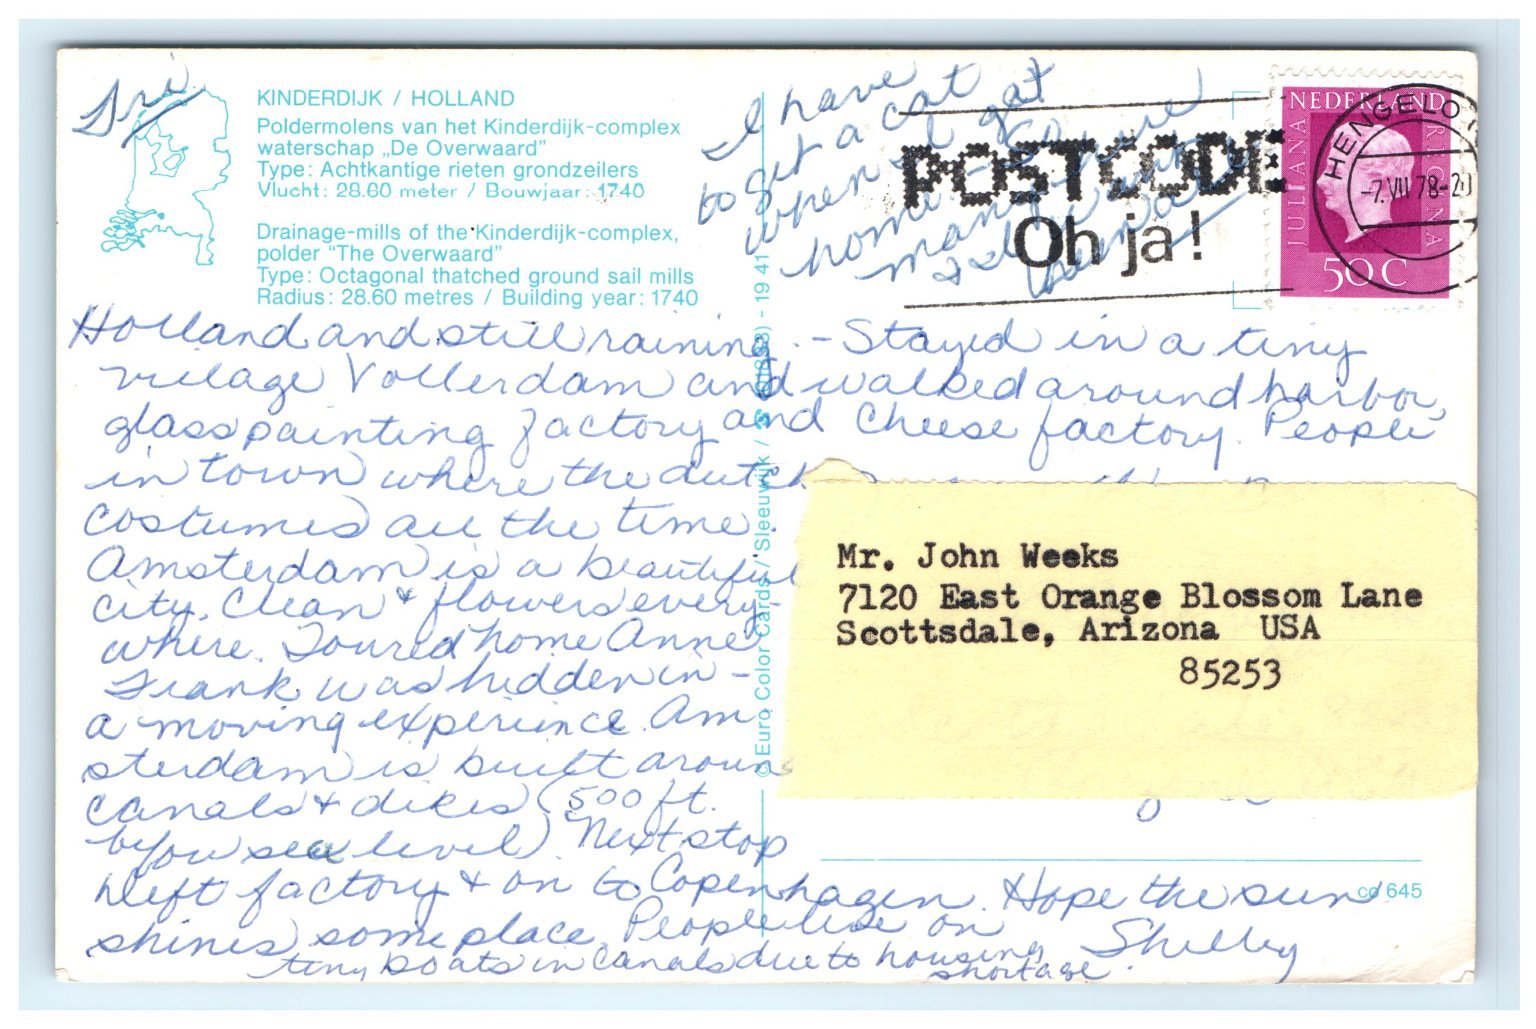 Fri
KINDERDIJK / HOLLAND
Poldermolens van het Kinderdijk-complex
waterschap „De Overwaard”
Type: Achtkantige rieten grondzeilers
Vlucht: 28.60 meter / Bouwjaar: 1740
Drainage-mills of the Kinderdijk-complex,
polder "The Overwaard"
Type: Octagonal thatched ground sail mills
Radius: 28.60 metres / Building year: 1740
I have
to get a cat
when I get
home -
many
POSTCODE
Oh ja!
NEDERLAND
JULIANA
REGINA
50 C
HENGELO
-7.VII 78-20
Holland and still raining. - Stayed in a tiny
village Vollerdam and walked around harbor,
glass painting factory and cheese factory. People
in town where the dutch
costumes all the time.
Amsterdam is a beautiful
city. Clean & flowers every-
where. Toured home Anne
Frank was hidden in -
a moving experience. Am
sterdam is built aroun
canals & dikes (500 ft.
below sea level) Next stop
Delft factory & on to Copenhagen. Hope the sun
shines some place. People live on
tiny boats in canals due to housing
shortage.
Shelley
© Euro Color Cards / Sleeuwijk / - 19 41
Mr. John Weeks
7120 East Orange Blossom Lane
Scottsdale, Arizona USA
85253
co 645